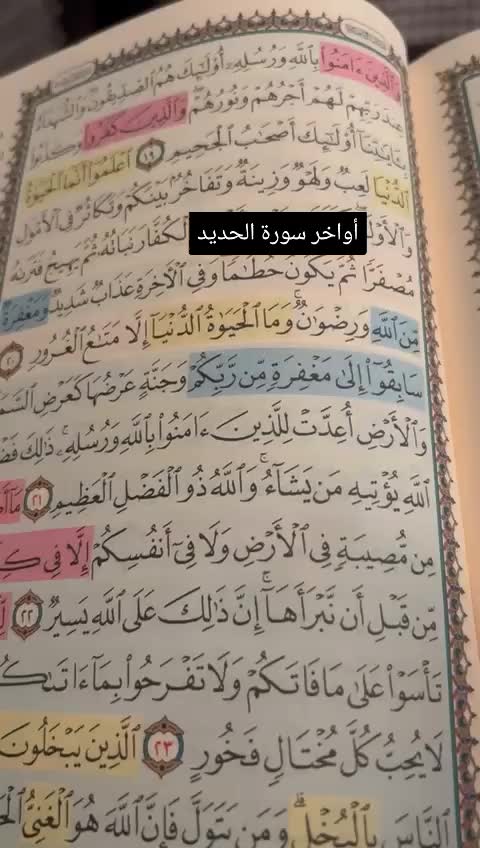 وَٱلَّذِينَ ءَامَنُوا۟ بِٱللَّهِ وَرُسُلِهِۦٓ أُو۟لَٰٓئِكَ هُمُ ٱلصِّدِّيقُونَ وَٱلشُّهَدَآءُ
عِندَ رَبِّهِمْ لَهُمْ أَجْرُهُمْ وَنُورُهُمْ وَٱلَّذِينَ كَفَرُوا۟ وَكَذَّبُوا۟
بِـَٔايَٰتِنَآ أُو۟لَٰٓئِكَ أَصْحَٰبُ ٱلْجَحِيمِ ١٩ ٱعْلَمُوٓا۟ أَنَّمَا ٱلْحَيَوٰةُ
ٱلدُّنْيَا لَعِبٌ وَلَهْوٌ وَزِينَةٌ وَتَفَاخُرٌۢ بَيْنَكُمْ وَتَكَاثُرٌ فِى ٱلْأَمْوَٰلِ
وَٱلْأَوْلَٰدِ ٱلْكُفَّارَ نَبَاتُهُۥ ثُمَّ يَهِيجُ فَتَرَىٰهُ
أواخر سورة الحديد
مُصْفَرًّا ثُمَّ يَكُونُ حُطَٰمًا وَفِى ٱلْـَٔاخِرَةِ عَذَابٌ شَدِيدٌ وَمَغْفِرَةٌ
مِّنَ ٱللَّهِ وَرِضْوَٰنٌ وَمَا ٱلْحَيَوٰةُ ٱلدُّنْيَآ إِلَّا مَتَٰعُ ٱلْغُرُورِ ٢٠
سَابِقُوٓا۟ إِلَىٰ مَغْفِرَةٍ مِّن رَّبِّكُمْ وَجَنَّةٍ عَرْضُهَا كَعَرْضِ
وَٱلْأَرْضِ أُعِدَّتْ لِلَّذِينَ ءَامَنُوا۟ بِٱللَّهِ وَرُسُلِهِۦ ذَٰلِكَ
ٱللَّهِ يُؤْتِيهِ مَن يَشَآءُ وَٱللَّهُ ذُو ٱلْفَضْلِ ٱلْعَظِيمِ ٢١
مِن مُّصِيبَةٍ فِى ٱلْأَرْضِ وَلَا فِىٓ أَنفُسِكُمْ إِلَّا فِى
مِّن قَبْلِ أَن نَّبْرَأَهَآ إِنَّ ذَٰلِكَ عَلَى ٱللَّهِ يَسِيرٌ ٢٢
تَأْسَوْا۟ عَلَىٰ مَا فَاتَكُمْ وَلَا تَفْرَحُوا۟ بِمَآ
لَا يُحِبُّ كُلَّ مُخْتَالٍ فَخُورٍ ٢٣ ٱلَّذِينَ يَبْخَلُونَ
ٱلنَّاسَ بِٱلْبُخْلِ وَمَن يَتَوَلَّ فَإِنَّ ٱللَّهَ هُوَ ٱلْغَنِىُّ